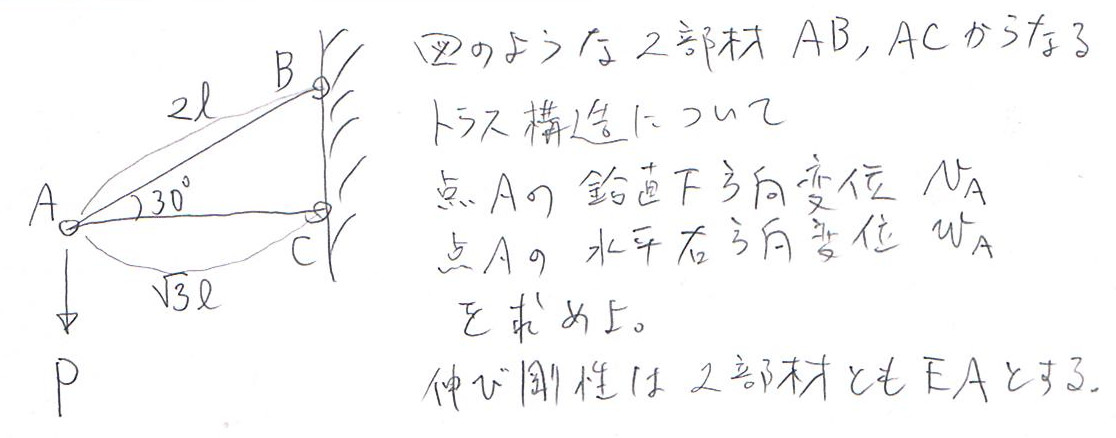 図のような2部材 AB, ACからなる
トラス構造について
点Aの 鉛直下方向変位 vA
点Aの 水平右方向変位 wA
を求めよ。
伸び剛性は2部材ともEAとする.
B
2l
A
30°
C
√3l
P